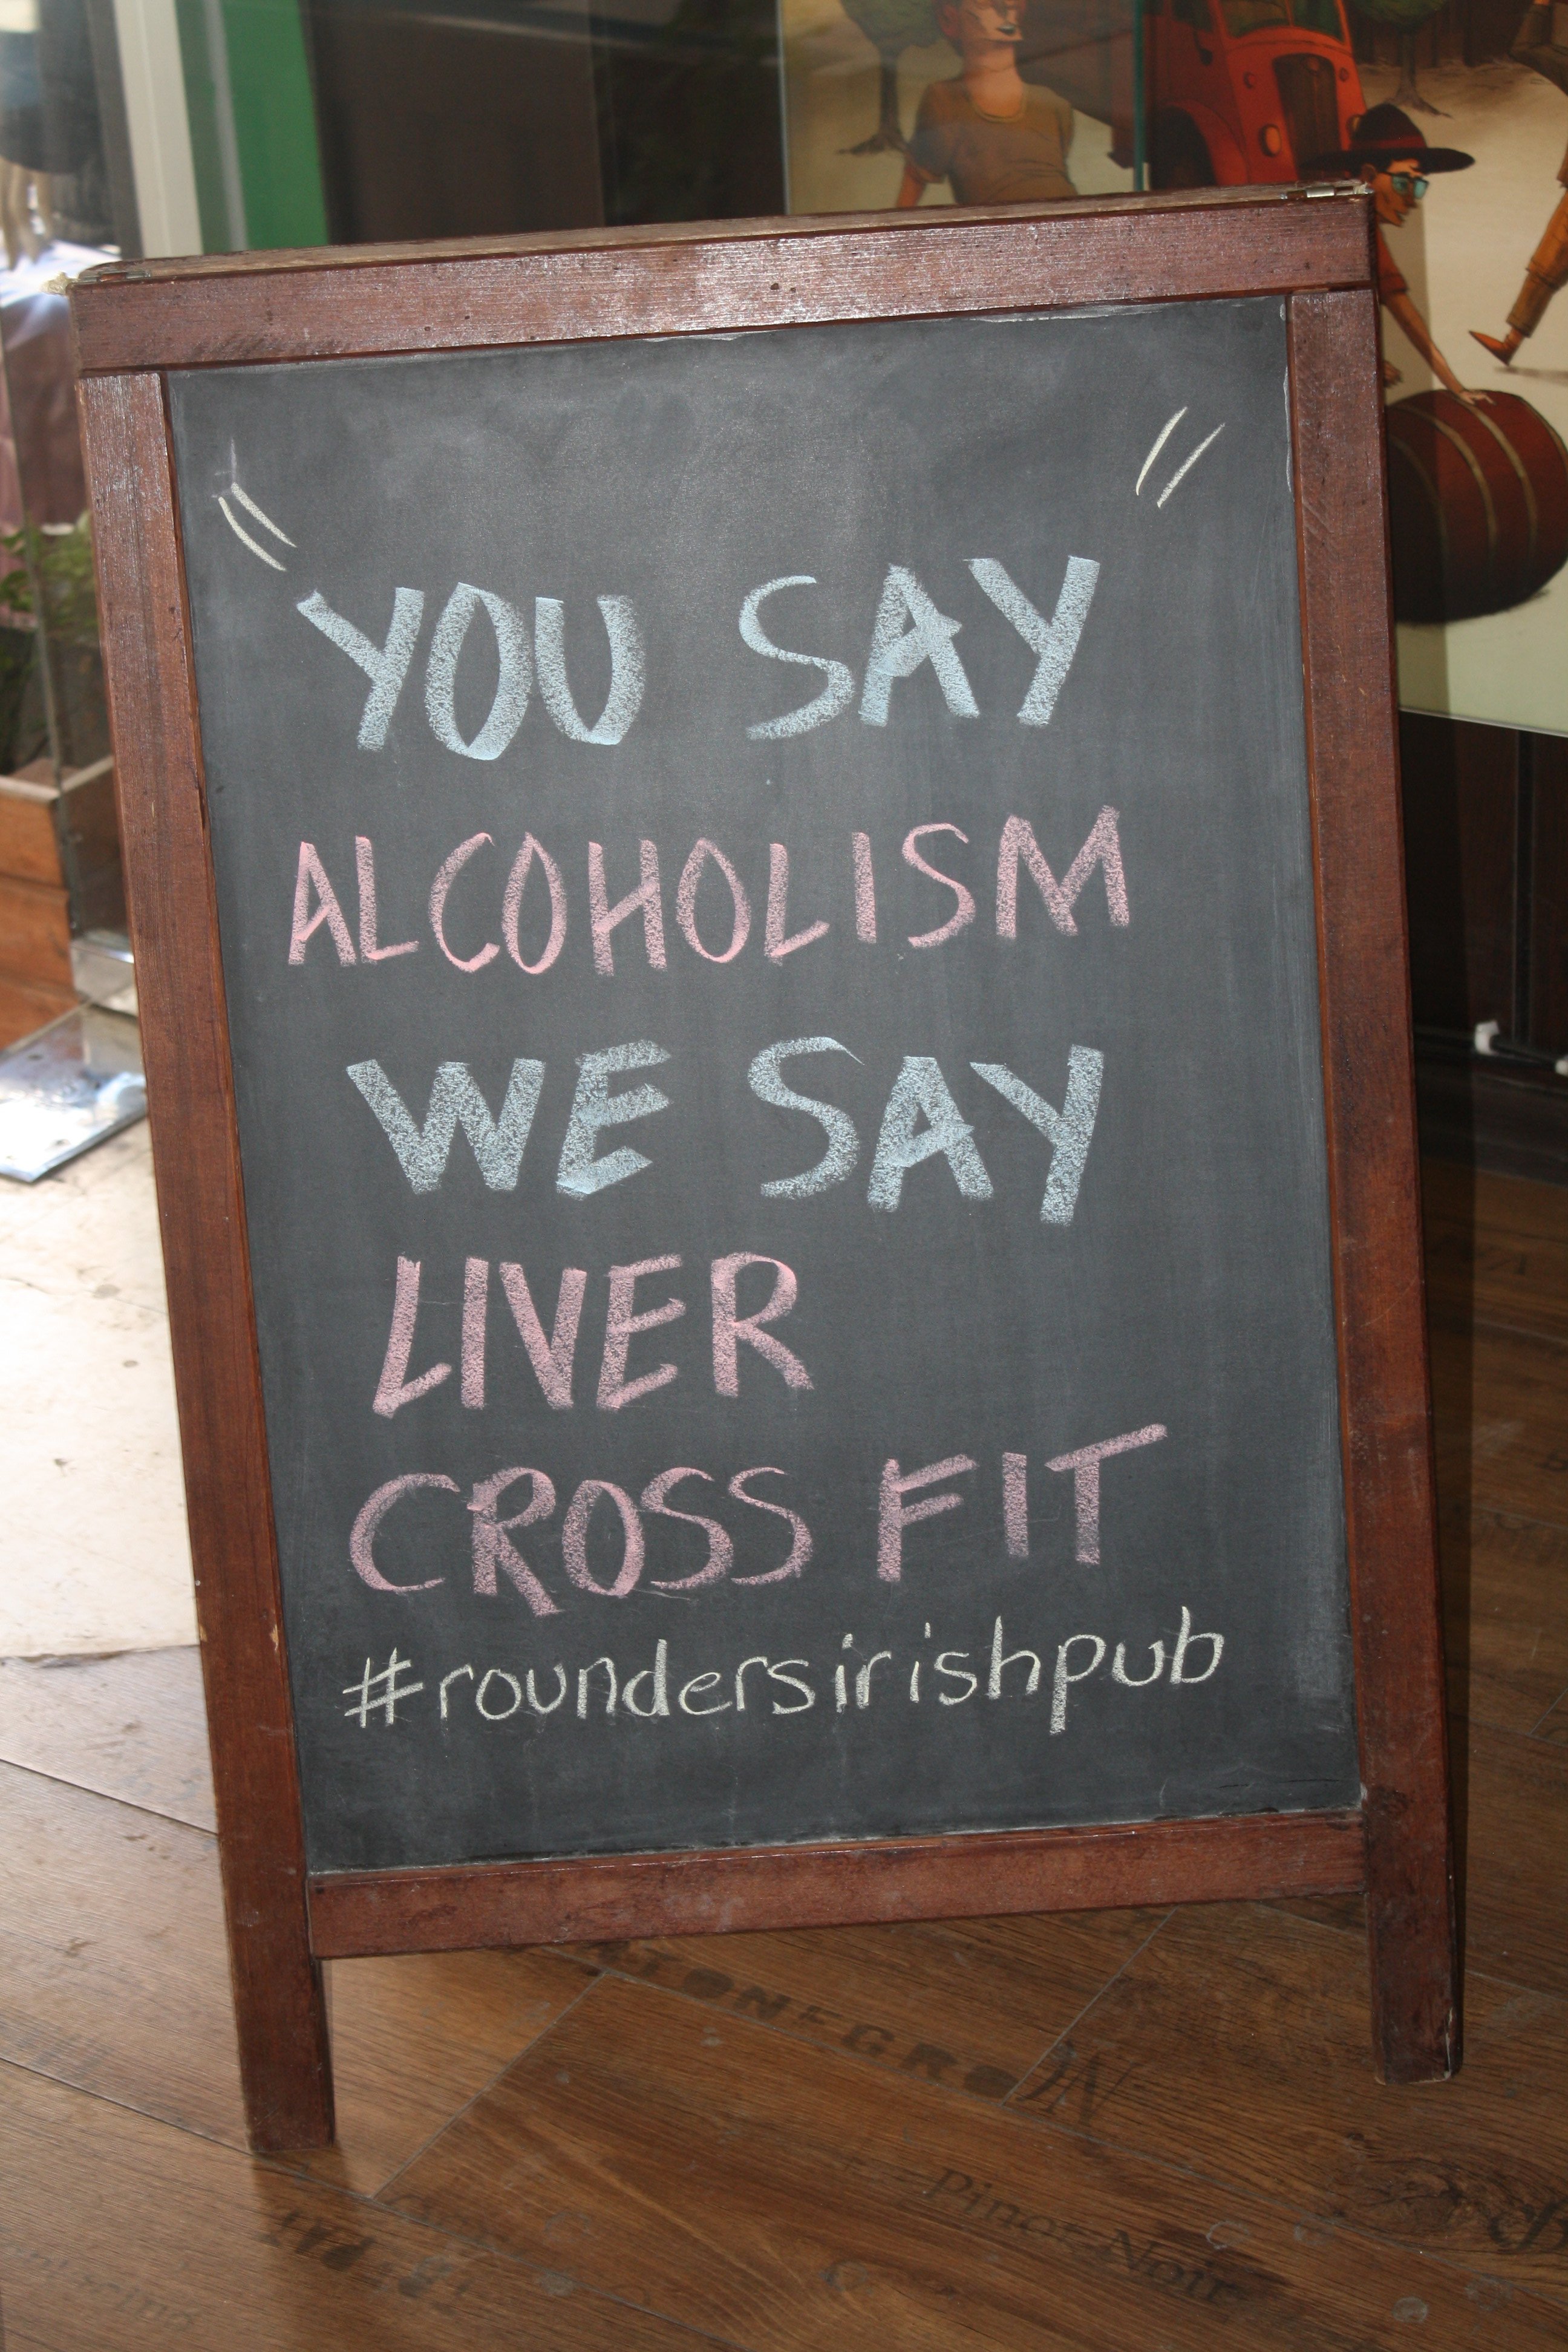 "YOU SAY"
ALCOHOLISM
WE SAY
LIVER
CROSS FIT
#roundersirishpub
Pinot Noir